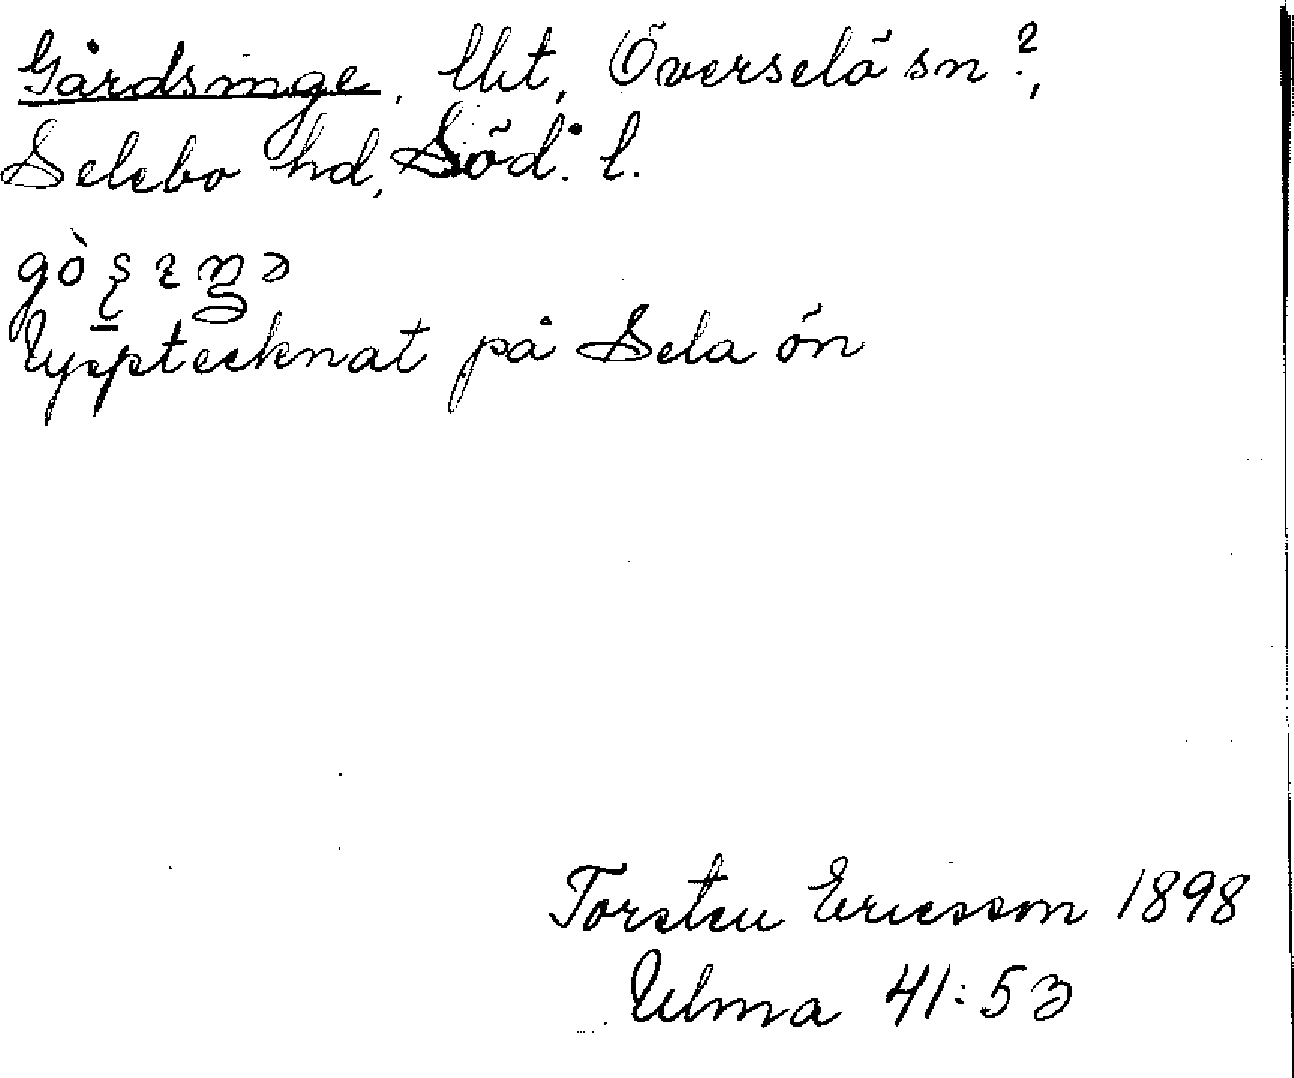 Gårdsinge, Ukt, Överselö sn?,
Selebo hd, Söd. l.
Upptecknat på Selaön
Torsten Ericsson 1898
Ulma 41:53